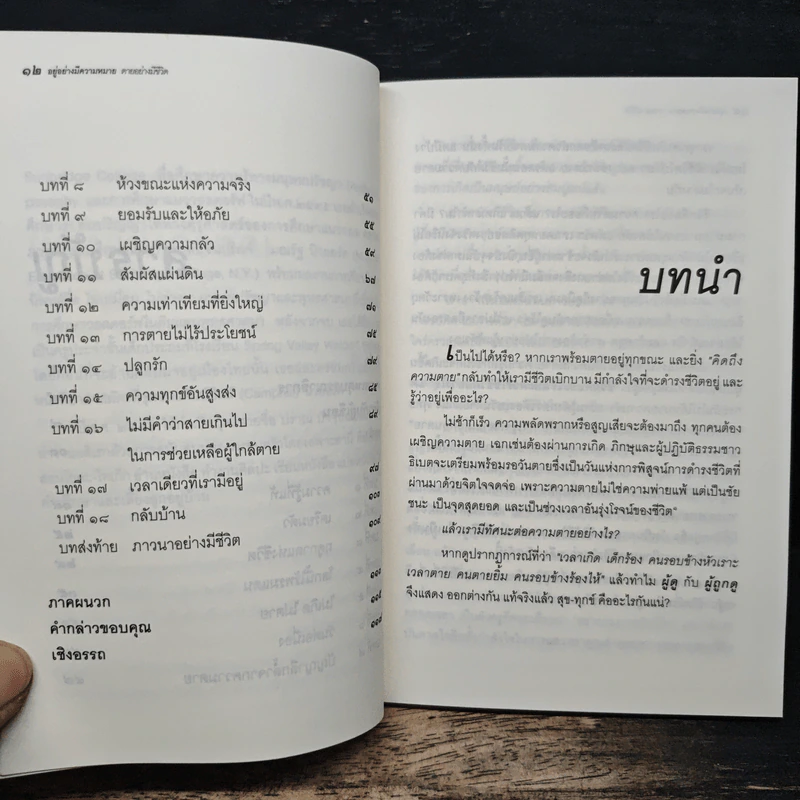 ๑๒ อยู่อย่างมีความหมาย ตายอย่างมีชีวิต
บทที่ ๘ ห้วงขณะแห่งความจริง ๕๑
บทที่ ๙ ยอมรับและให้อภัย ๕๕
บทที่ ๑๐ เผชิญความกลัว ๕๙
บทที่ ๑๑ สัมผัสแผ่นดิน ๖๗
บทที่ ๑๒ ความเท่าเทียมที่ยิ่งใหญ่ ๗๑
บทที่ ๑๓ การตายไม่ไร้ประโยชน์ ๗๕
บทที่ ๑๔ ปลูกรัก ๗๙
บทที่ ๑๕ ความทุกข์อันสูงส่ง ๘๕
บทที่ ๑๖ ไม่มีคำว่าสายเกินไป ๘๙
ในการช่วยเหลือผู้ใกล้ตาย
บทที่ ๑๗ เวลาเดียวที่เรามีอยู่ ๙๗
บทที่ ๑๘ กลับบ้าน ๑๐๐
บทส่งท้าย ภาวนาอย่างมีชีวิต
ภาคผนวก
คำกล่าวขอบคุณ
เชิงอรรถ
บทนำ
เป็นไปได้หรือ? หากเราพร้อมตายอยู่ทุกขณะ และยิ่ง "คิดถึง
ความตาย" กลับทำให้เรามีชีวิตเบิกบาน มีกำลังใจที่จะดำรงชีวิตอยู่ และ
รู้ว่าอยู่เพื่ออะไร?
ไม่ช้าก็เร็ว ความพลัดพรากหรือสูญเสียจะต้องมาถึง ทุกคนต้อง
เผชิญความตาย เฉกเช่นต้องผ่านการเกิด ภิกษุและผู้ปฏิบัติธรรมชาว
ธิเบตจะเตรียมพร้อมรอวันตายซึ่งเป็นวันแห่งการพิสูจน์การดำรงชีวิตที่
ผ่านมาด้วยจิตใจจดจ่อ เพราะความตายไม่ใช่ความพ่ายแพ้ แต่เป็นชัย
ชนะ เป็นจุดสุดยอด และเป็นช่วงเวลาอันรุ่งโรจน์ของชีวิต"
แล้วเรามีทัศนะต่อความตายอย่างไร?
หากดูปรากฏการณ์ที่ว่า "เวลาเกิด เด็กร้อง คนรอบข้างหัวเราะ
เวลาตาย คนตายยิ้ม คนรอบข้างร้องไห้" แล้วทำไม ผู้ดู กับ ผู้ถูกดู
จึงแสดง ออกต่างกัน แท้จริงแล้ว สุข-ทุกข์ คืออะไรกันแน่?